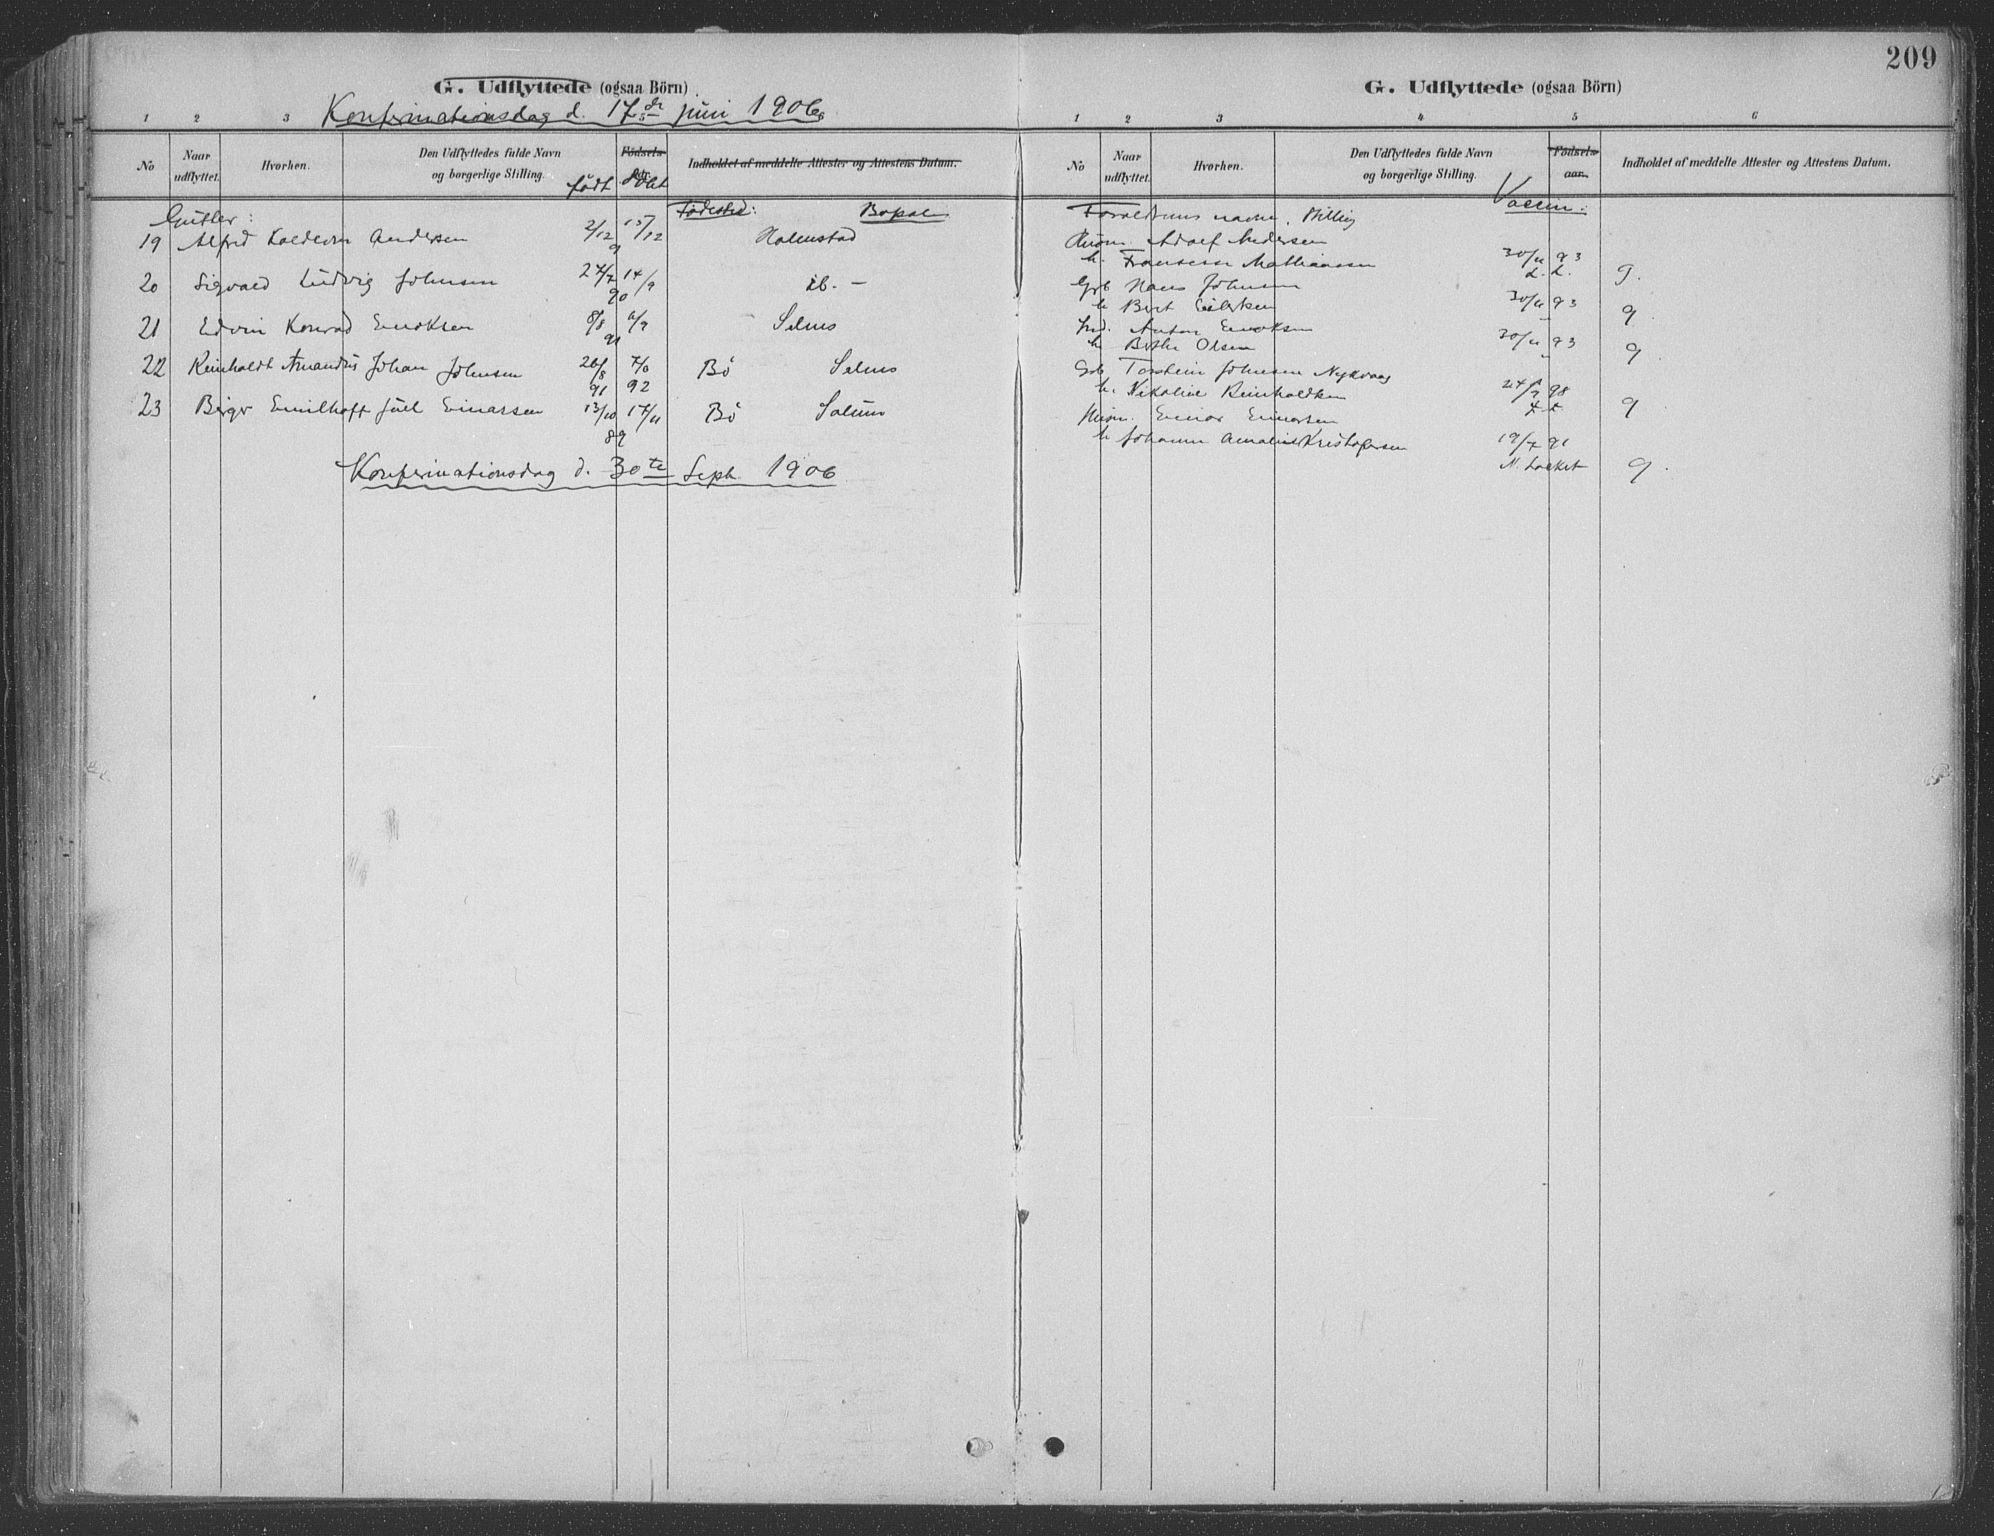 209
G. Udflyttede (ogsaa Börn)
Konfirmationsdag d. 17de juni 1906
1 2 3
No
Naar udflyttet.
Hvorhen.
Den Udflyttedes fulde Navn og borgerlige Stilling.
født
Fødsels-
døbt
Indholdet af meddelte Attester og Attestens Datum.
Gutter:
Fødested: Bopæl
19 Alfred Andersen 2/12 91 13/12 Halmstad
20 Sigvald Ludvig Johnsen 27/7 90 14/9 ib. –
21 Edvin Konrad Eriksen 8/8 91 Selnes
22 Reinholdt Amandus Johan Johnsen 26/8 91 92 Bö Selnes
23 Birger Emilhoft Juel Einarsen 13/10 89 17/11 Bö
Konfirmationsdag d. 30te Septr. 1906
G. Udflyttede (ogsaa Börn)
1 2 3 4 5 6
No
Naar udflyttet.
Hvorhen.
Den Udflyttedes fulde Navn og borgerlige Stilling.
Fødsels-
aar.
Indholdet af meddelte Attester og Attestens Datum.
Forældrenes navne, Stilling
Vaccin:
Adolf Andersen
h. Mathiassen 30/11 93 g.
Grb Hans Johnsen
h Berit 30/11 93 g
Anton Eriksen
h Berthe Olsen 30/11 93 g
Grb Torstein Johnsen Nykvaag
h. Nikoline Reinholdtsen 98 g
Einar Einarsen
h Johanna Amalie Kristofersen 19/7 91
g.